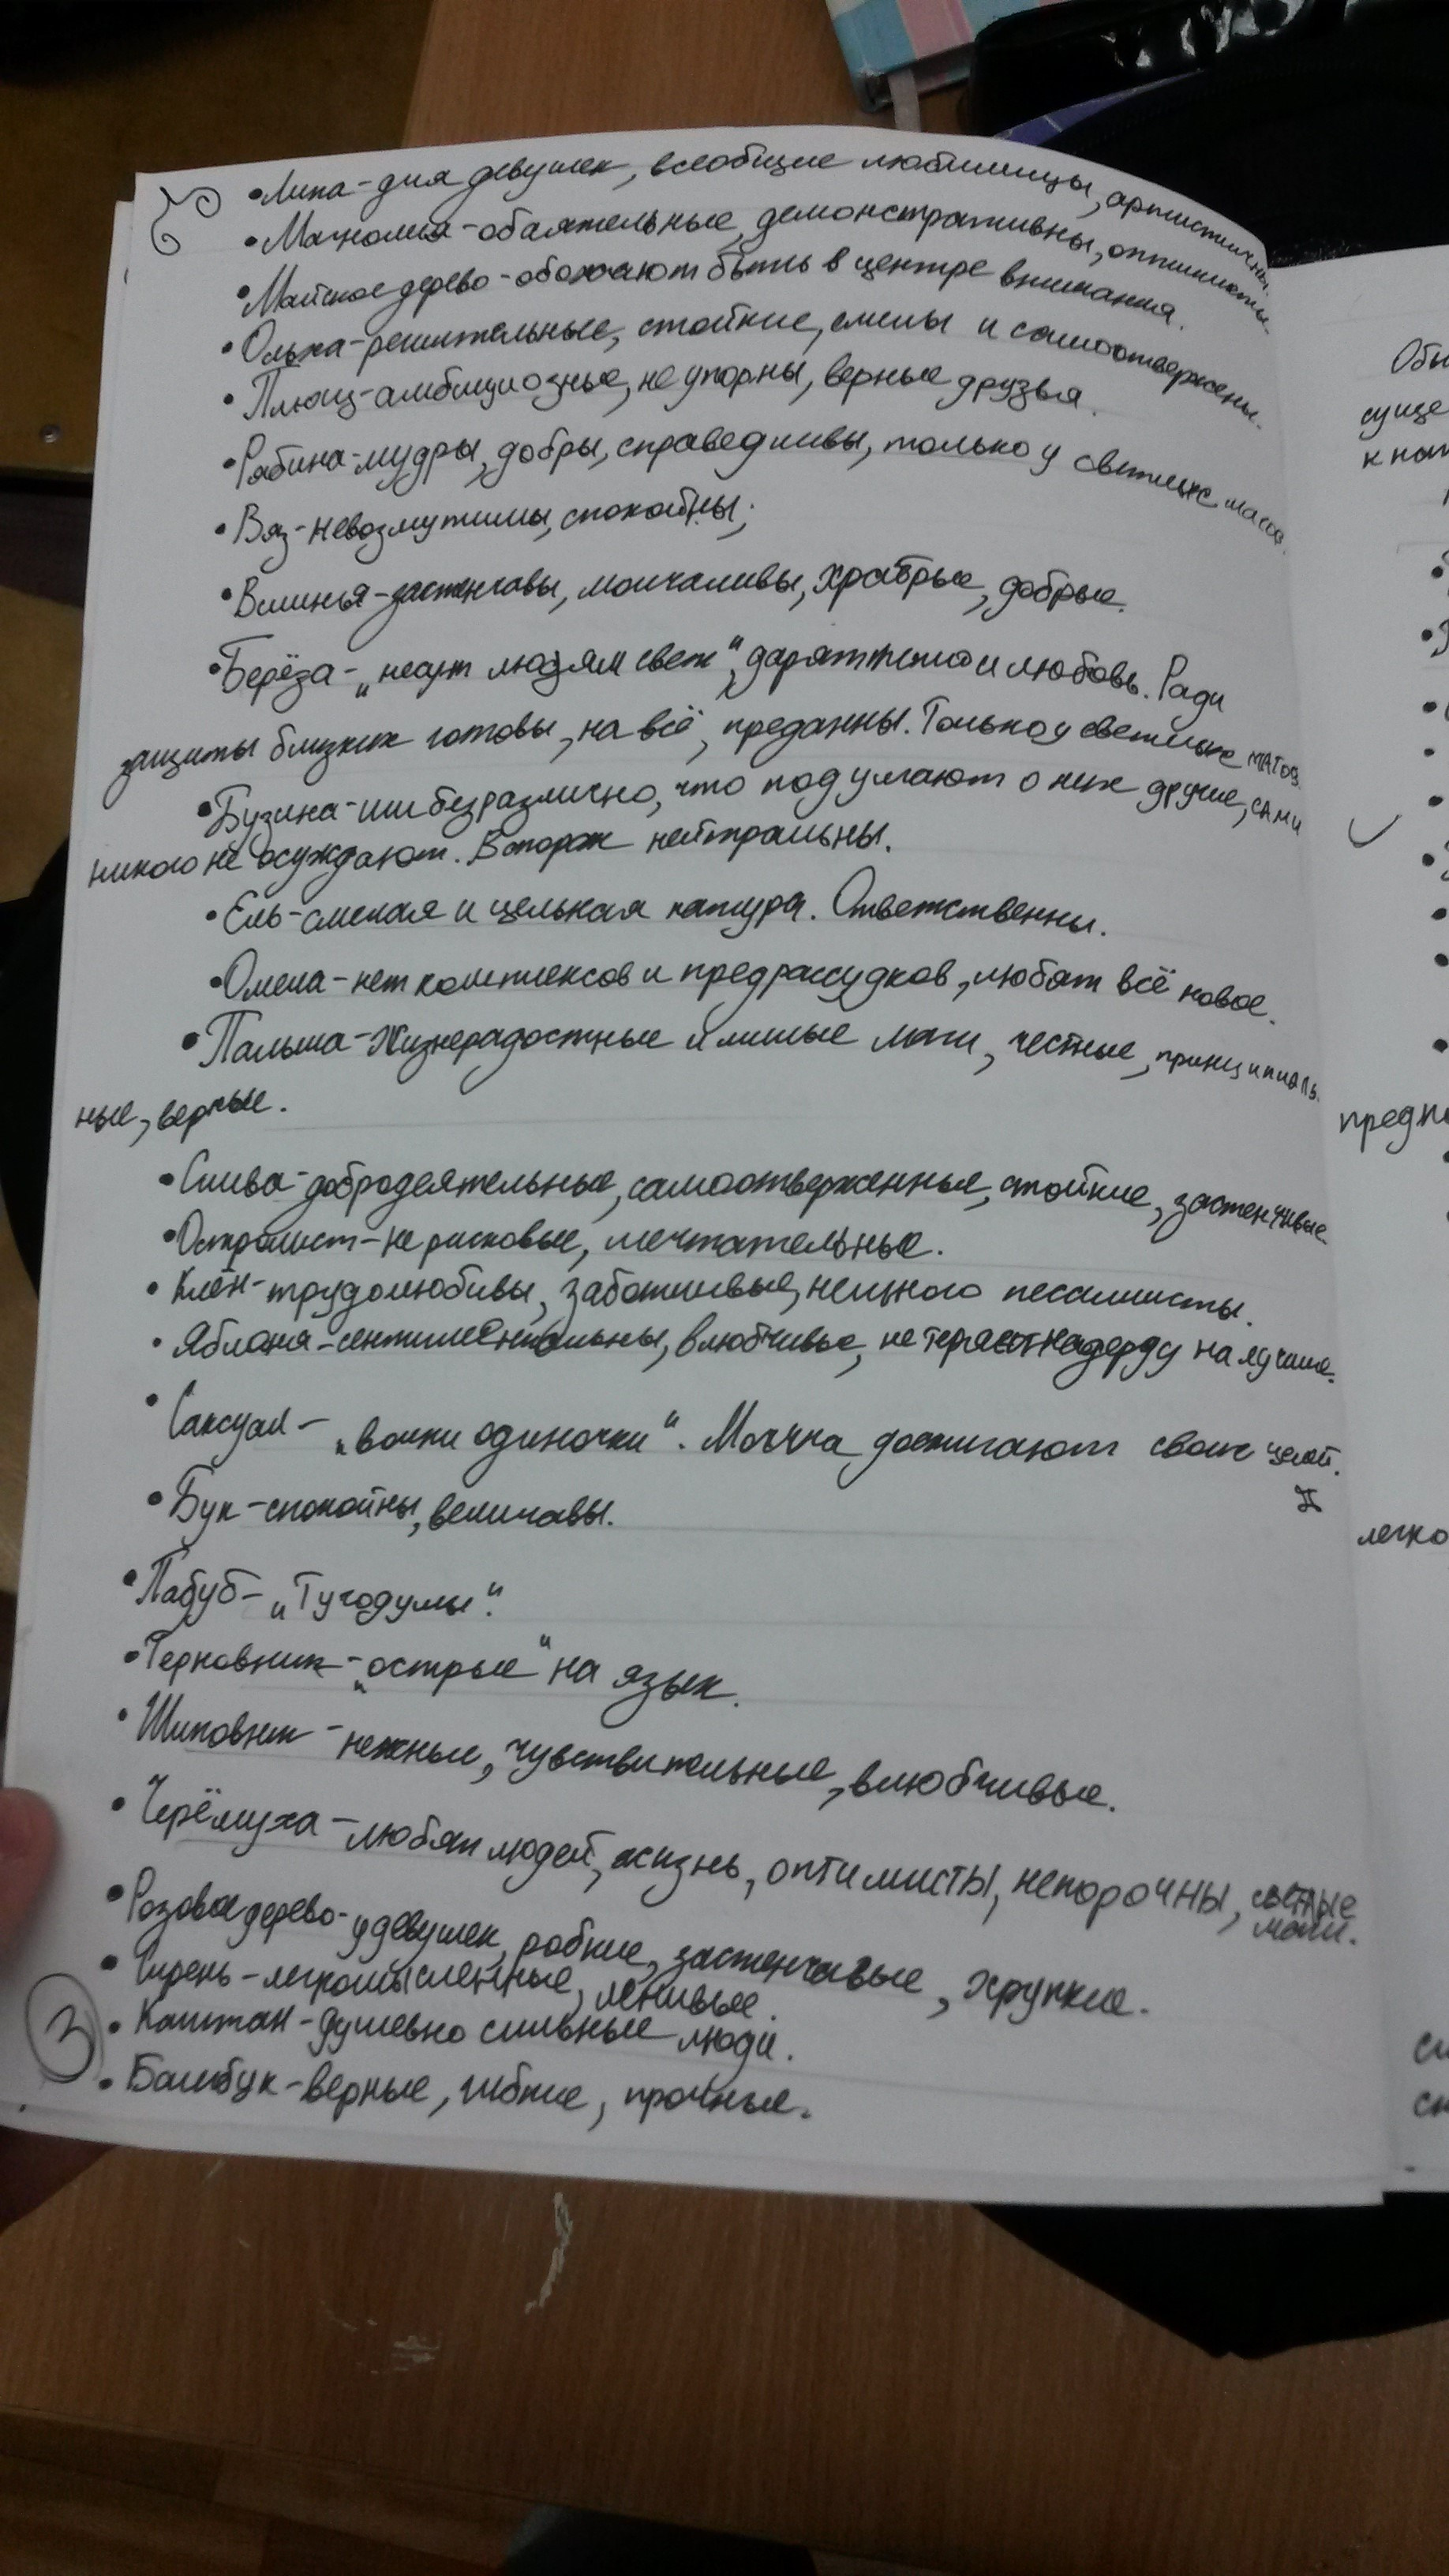 •Липа-для девушек, всеобщие любимицы, артистичны.
•Магнолия-обаятельные, демонстративны, оптимисты.
•Майское дерево-обожают быть в центре внимания.
•Ольха-решительные, стойкие, смелы и самоотвержены.
•Плющ-амбициозные, не упорны, верные друзья.
•Рябина-мудры, добры, справедливы, только у светлых магов.
•Вяз-невозмутимы, спокойны;
•Вишнья-застенчивы, молчаливы, храбрые, добрые.
•Берёза-„несут людям свет“, дарят тепло и любовь. Ради
защиты близких готовы, на всё, преданны. Только у светлых магов.
•Бузина-им безразлично, что подумают о них другие, сами
никого не осуждают. В спорах нейтральны.
•Ель-смелая и цельная натура. Ответственны.
•Омела-нет комплексов и предрассудков, любят всё новое.
•Пальма-жизнерадостные и милые маги, честные, принципиаль-
ные, верные.
•Слива-добродеятельные, самоотверженные, стойкие, застенчивые
•Остролист-не рисковые, мечтательные.
•Клён-трудолюбивы, заботливые, немного песаммисты.
•Яблоня-сентиментальны, влюбчивые, не теряют надежду на лучшее.
•Саксуал-„волки одиночки“. Молча достигают своих целей.
•Бук-спокойны, величавы.
•Лабуб-„Тугодумы“.
•Терновник-„острые“ на язык.
•Шиповник-нежные, чувствительные, влюбчивые.
•Черёмуха-любят людей, жизнь, оптимисты, непорочны, светлые
маги.
•Розовое дерево-у девушек, робкие, застенчивые, хрупкие.
•Сирень-легкомысленные, ленивые.
3
•Каштан-душевно сильные люди.
•Бамбук-верные, гибкие, прочные.
Обы
суще
к пот
предпо
легко